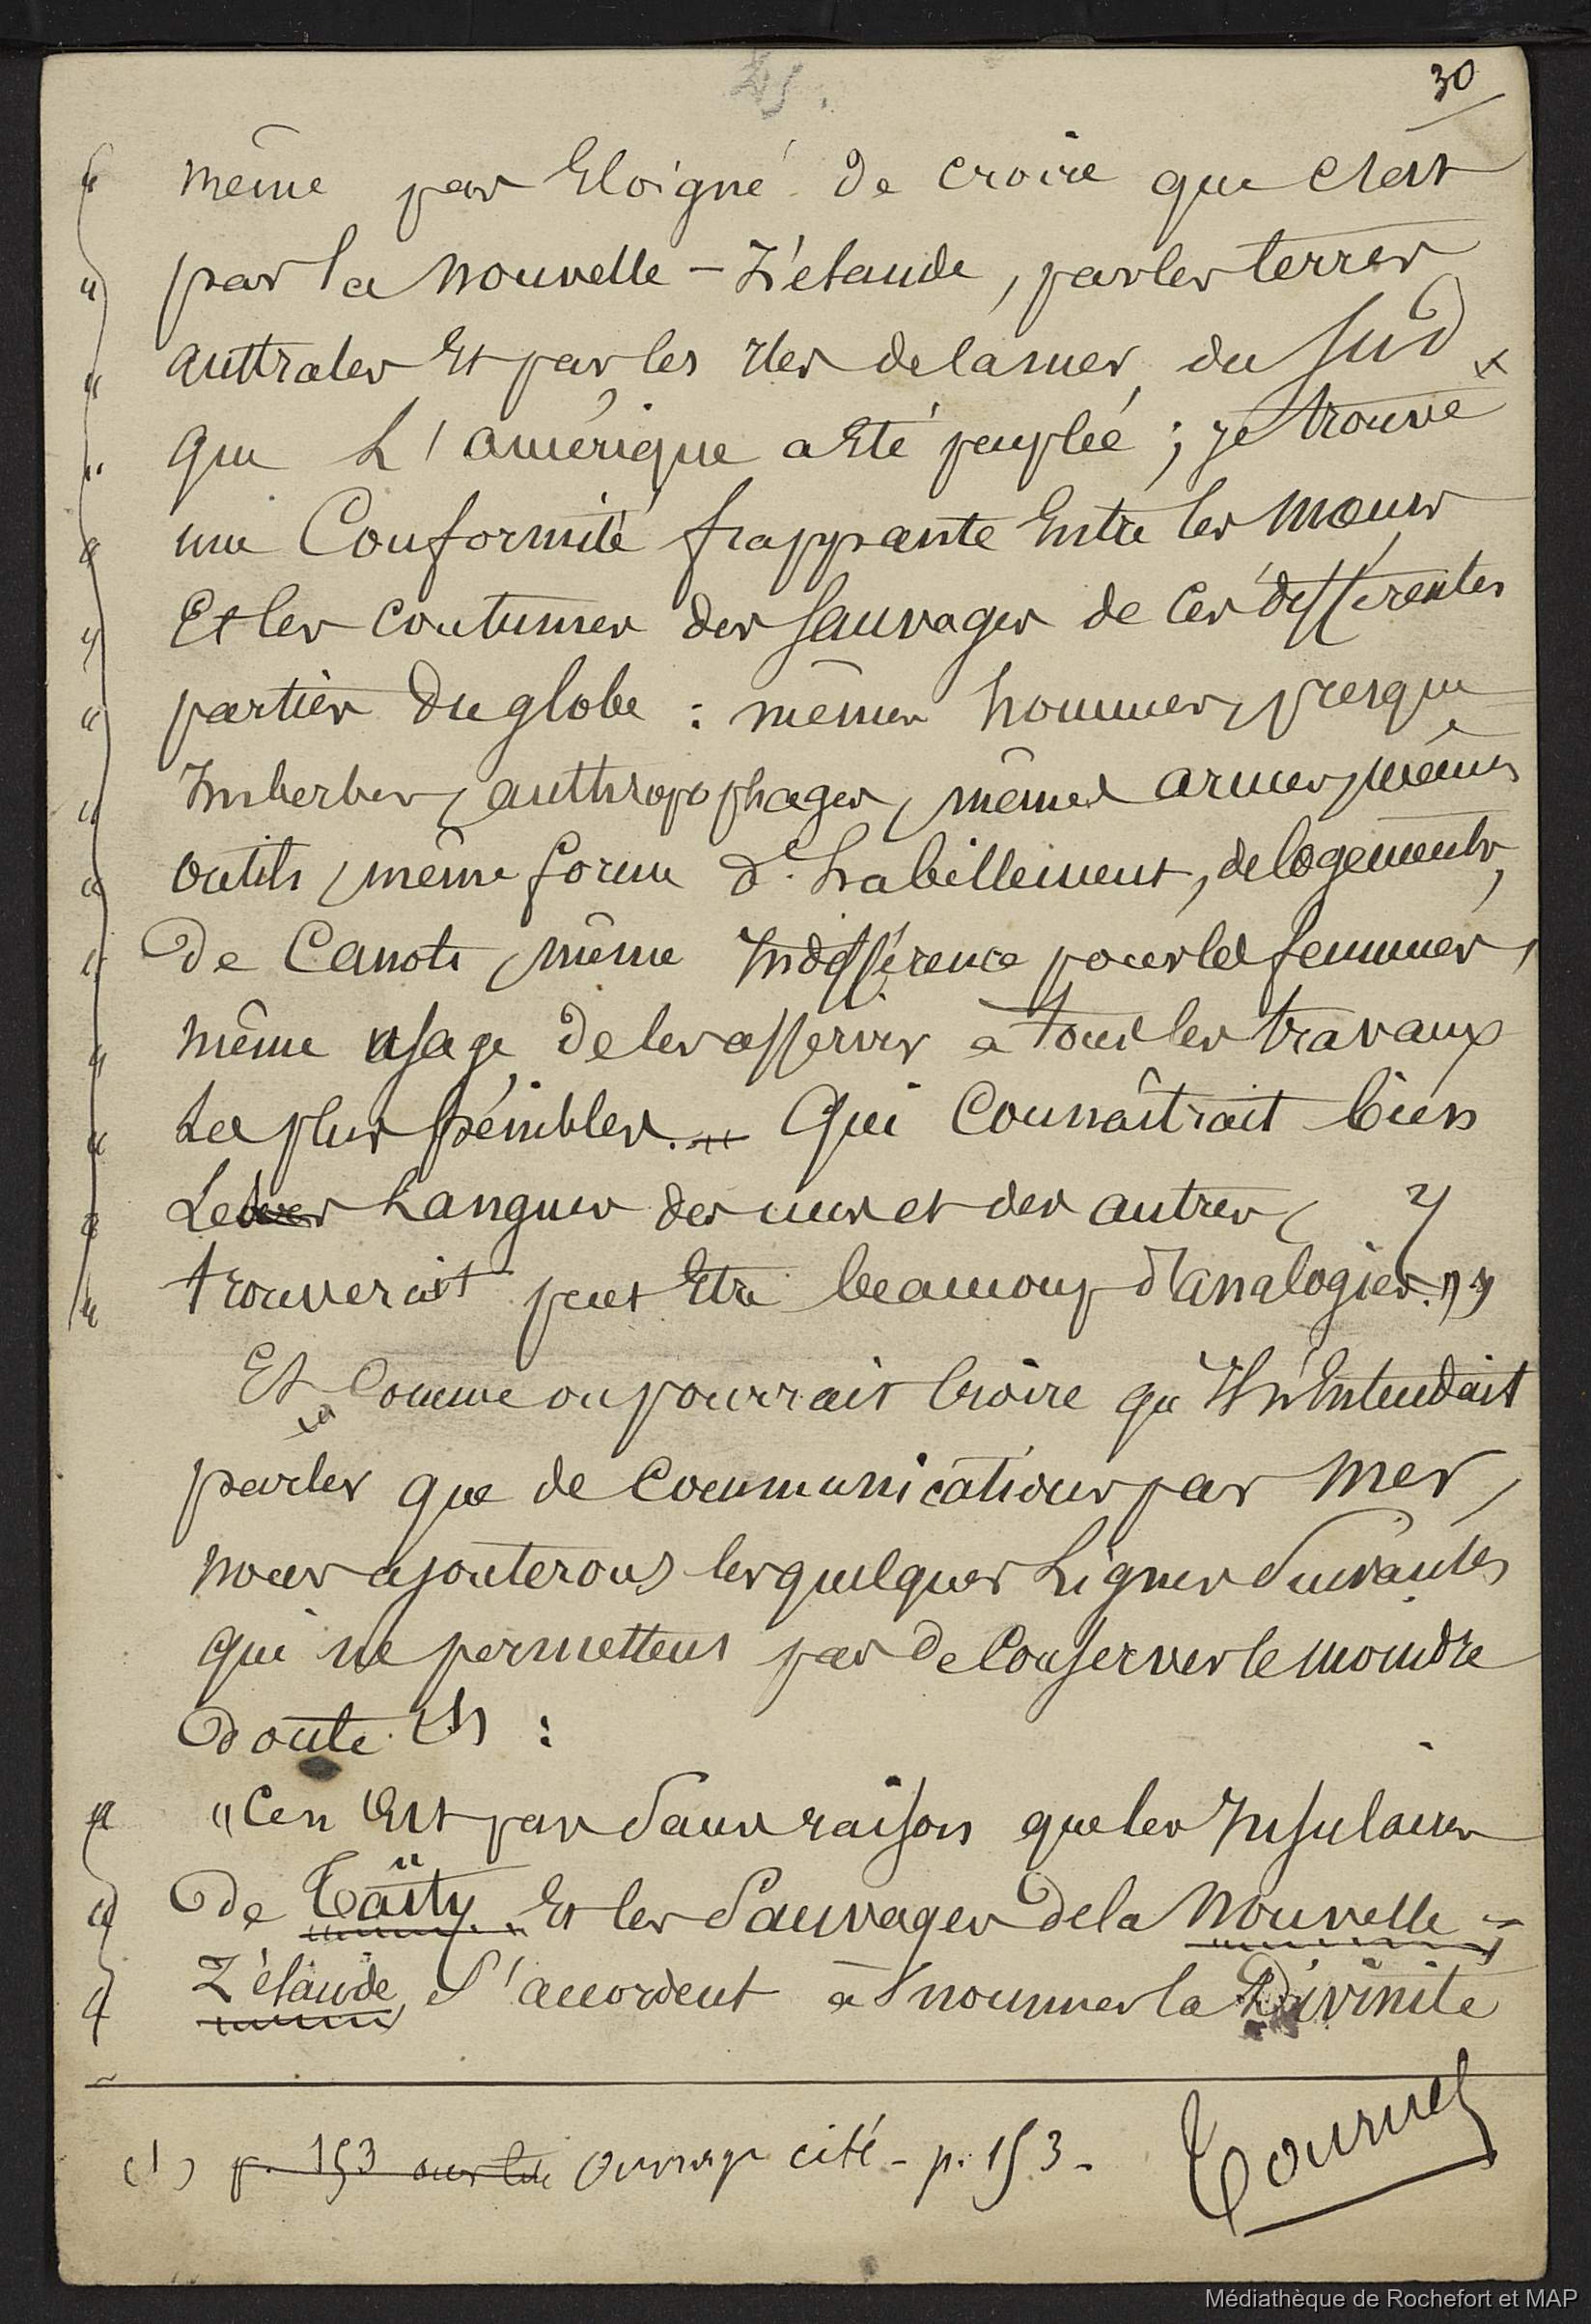 30
même pas Eloigné de croire que c'est
par la Nouvelle-Zélande, par les terres
australes Et par les Iles de la mer du Sud
que L'amérique a Eté peuplée ; je trouve
une Conformité frappante Entre les Mœurs
Et les coutumes des Sauvages de Ces différentes
parties Du globe : mêmes hommes, presque
Imberbes, anthropophages, mêmes armes, mêmes
outils, même forme d'habillement, de logements,
De Canots, même Indifférence pour les femmes,
même usage, de les asservir à tous les travaux
Les plus pénibles. Qui Connaîtrait bien
Les Langues des uns et des autres, y
trouverait peut Etre beaucoup d'analogies. »
Et Comme on pourrait Croire qu'Il n'Entendait
parler que de Communications par Mer,
nous ajouterons les quelques Lignes Suivantes
qui ne permettent pas de Conserver le moindre
Doute (1) :
"Ce n'Est pas Sans raison que les Insulaires
De Taïty Et les Sauvages de la Nouvelle-
Zélande, S'accordent à nommer la Divinité
(1) p. 153 Ouvrage cité - p. 153 -
Médiathèque de Rochefort et MAP